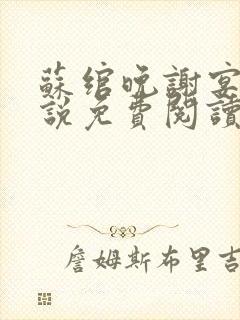 蘇綰晚謝宴
說免費閱讀
詹姆斯布里吉